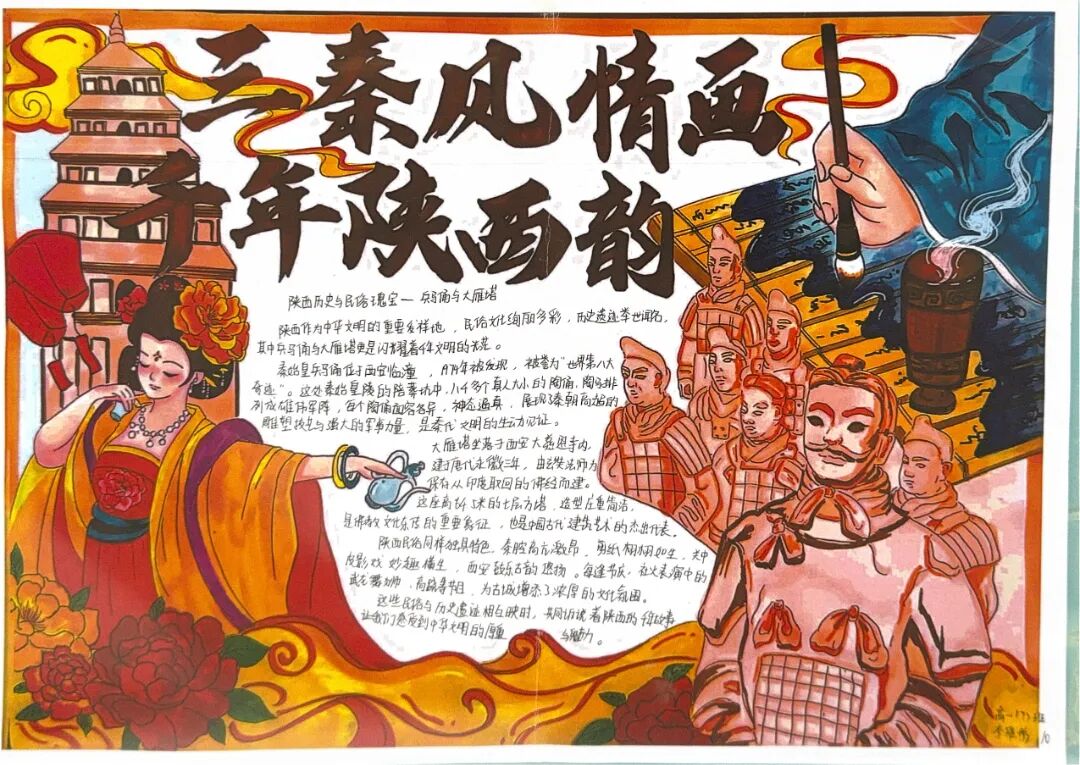 三秦风情画
千年陕西韵
陕西历史与民俗瑰宝—兵马俑与大雁塔
陕西作为中华文明的重要发祥地，民俗文化绚丽多彩，历史遗迹举世闻名，
其中兵马俑与大雁塔更是闪耀着千年文明的光芒。
秦始皇兵马俑位于西安临潼，1974年被发现，被誉为“世界第八大
奇迹”。这处秦始皇陵的陪葬坑中，八千多个真人大小的陶俑、陶马排
列成雄伟军阵，每个陶俑面容各异，神态逼真，展现了秦朝高超的
雕塑技艺与强大的军事力量，是秦代文明的生动见证。
大雁塔坐落于西安大慈恩寺内，
建于唐代永徽三年，由玄奘法师为
保存从印度取回的佛经而建。
这座高64.5米的七层方塔，造型庄重简洁，
是佛教文化东传的重要象征，也是中国古代建筑艺术的杰出代表。
陕西民俗同样独具特色，秦腔高亢激昂，剪纸栩栩如生，关中
皮影戏妙趣横生，西安鼓乐古韵悠扬。每逢节庆，社火表演中的
舞狮，高跷等节目，为古城增添了浓厚的文化氛围。
这些民俗与历史遗迹相互映衬，共同诉说着陕西的千年故事
让我们感受到中华文明的厚重与魅力。
高一 班